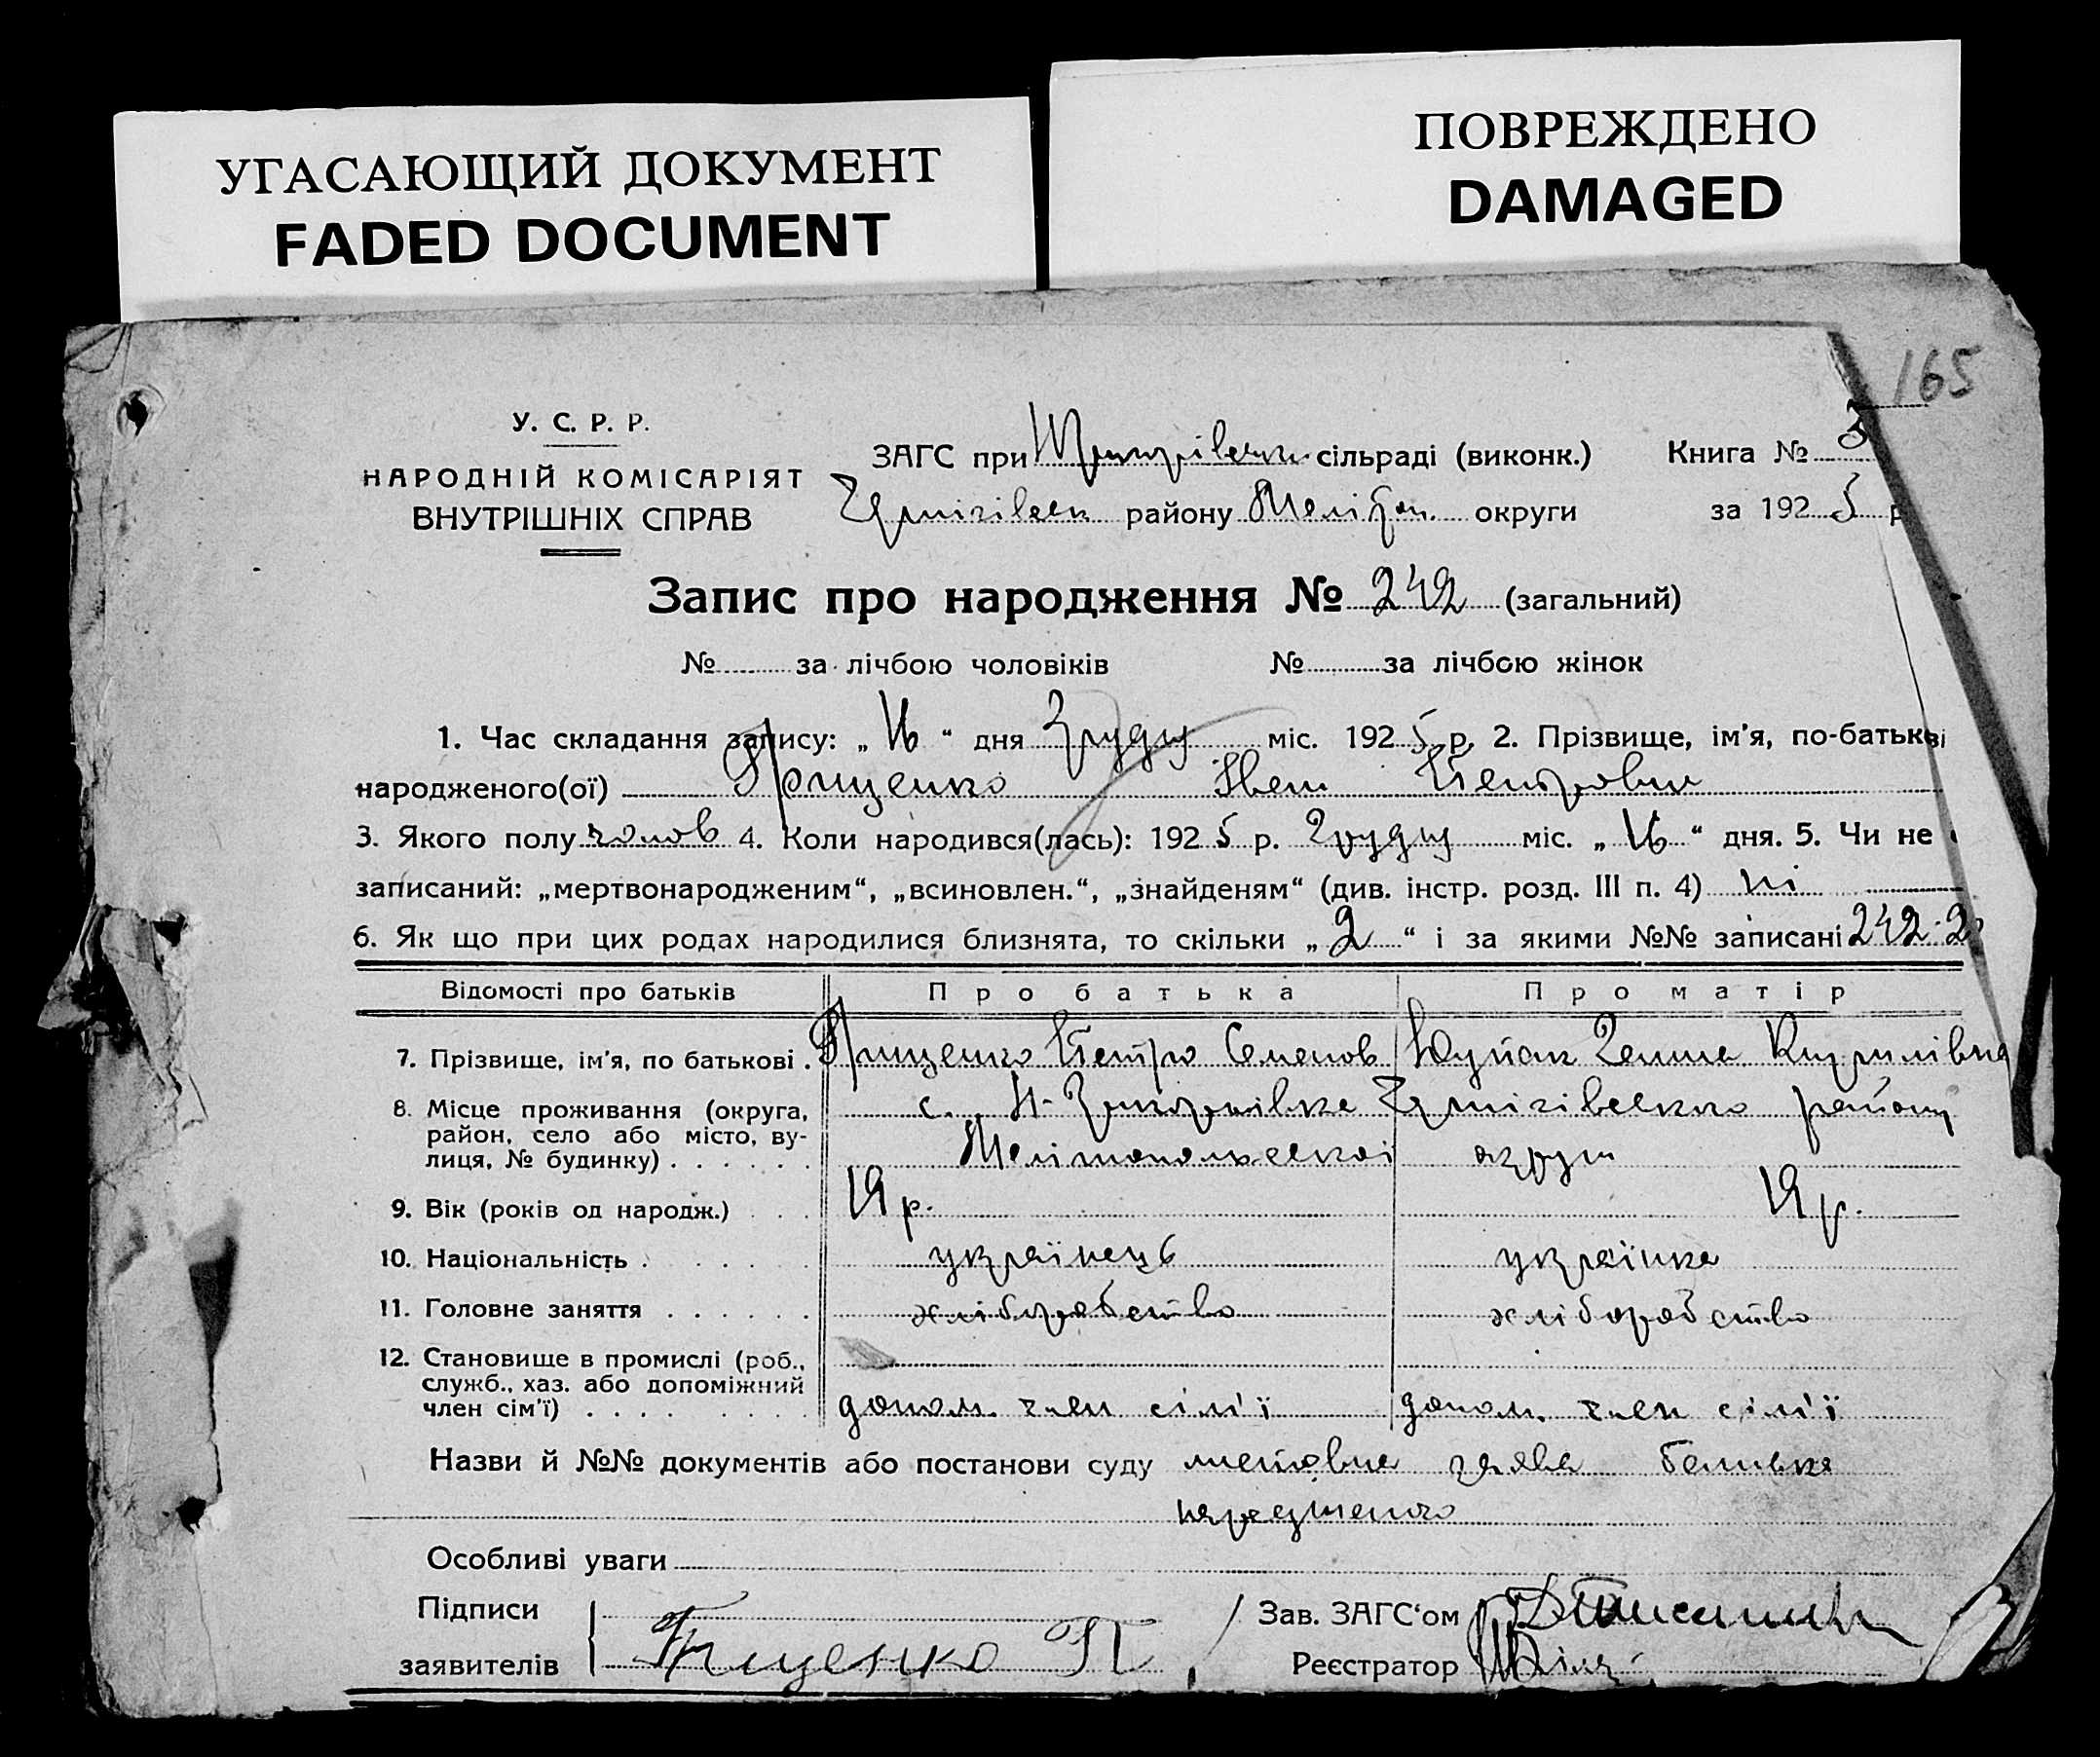 УГАСАЮЩИЙ ДОКУМЕНТ
FADED DOCUMENT
ПОВРЕЖДЕНО
DAMAGED
165
У. С. Р. Р.
НАРОДНІЙ КОМІСАРІЯТ
ВНУТРІШНІХ СПРАВ
ЗАГС при сільраді (виконк.) Книга № 3
Чернігівськ району Меліт. округи за 1925 р
Запис про народження № 242 (загальний)
№ за лічбою чоловіків № за лічбою жінок
1. Час складання запису: „16“ дня Грудня міс. 1925 р. 2. Прізвище, ім'я, по-батькові
народженого(ої) Грищенко Іван Петрович
3. Якого полу чолов 4. Коли народився(лась): 1925 р. Грудня міс. „16“ дня. 5. Чи не
записаний: „мертвонародженим“, „всиновлен.“, „знайденям“ (див. інстр. розд. III п. 4) ні
6. Як що при цих родах народилися близнята, то скільки „2“ і за якими №№ записані 242-2
Відомості про батьків Про батька Про матір
7. Прізвище, ім'я, по батькові . Грищенко Петро Семенов Ганна Кирилівна
8. Місце проживання (округа, район, село або місто, вулиця, № будинку) . . . . . . с. Н-Григорівка Чернігівського району
Мелітопольської округи
9. Вік (років од народж.) . . . 19 р. 19 р.
10. Національність . . . . . українець українка
11. Головне заняття . . . . . . хліборобство хліборобство
12. Становище в промислі (роб., служб., хаз. або допоміжний член сім'ї) . . . . . . . . допом. член сім'ї допом. член сім'ї
Назви й №№ документів або постанови суду заява батька
народженого
Особливі уваги
Підписи
заявителів Грищенко П
Зав. ЗАГС'ом
Реєстратор